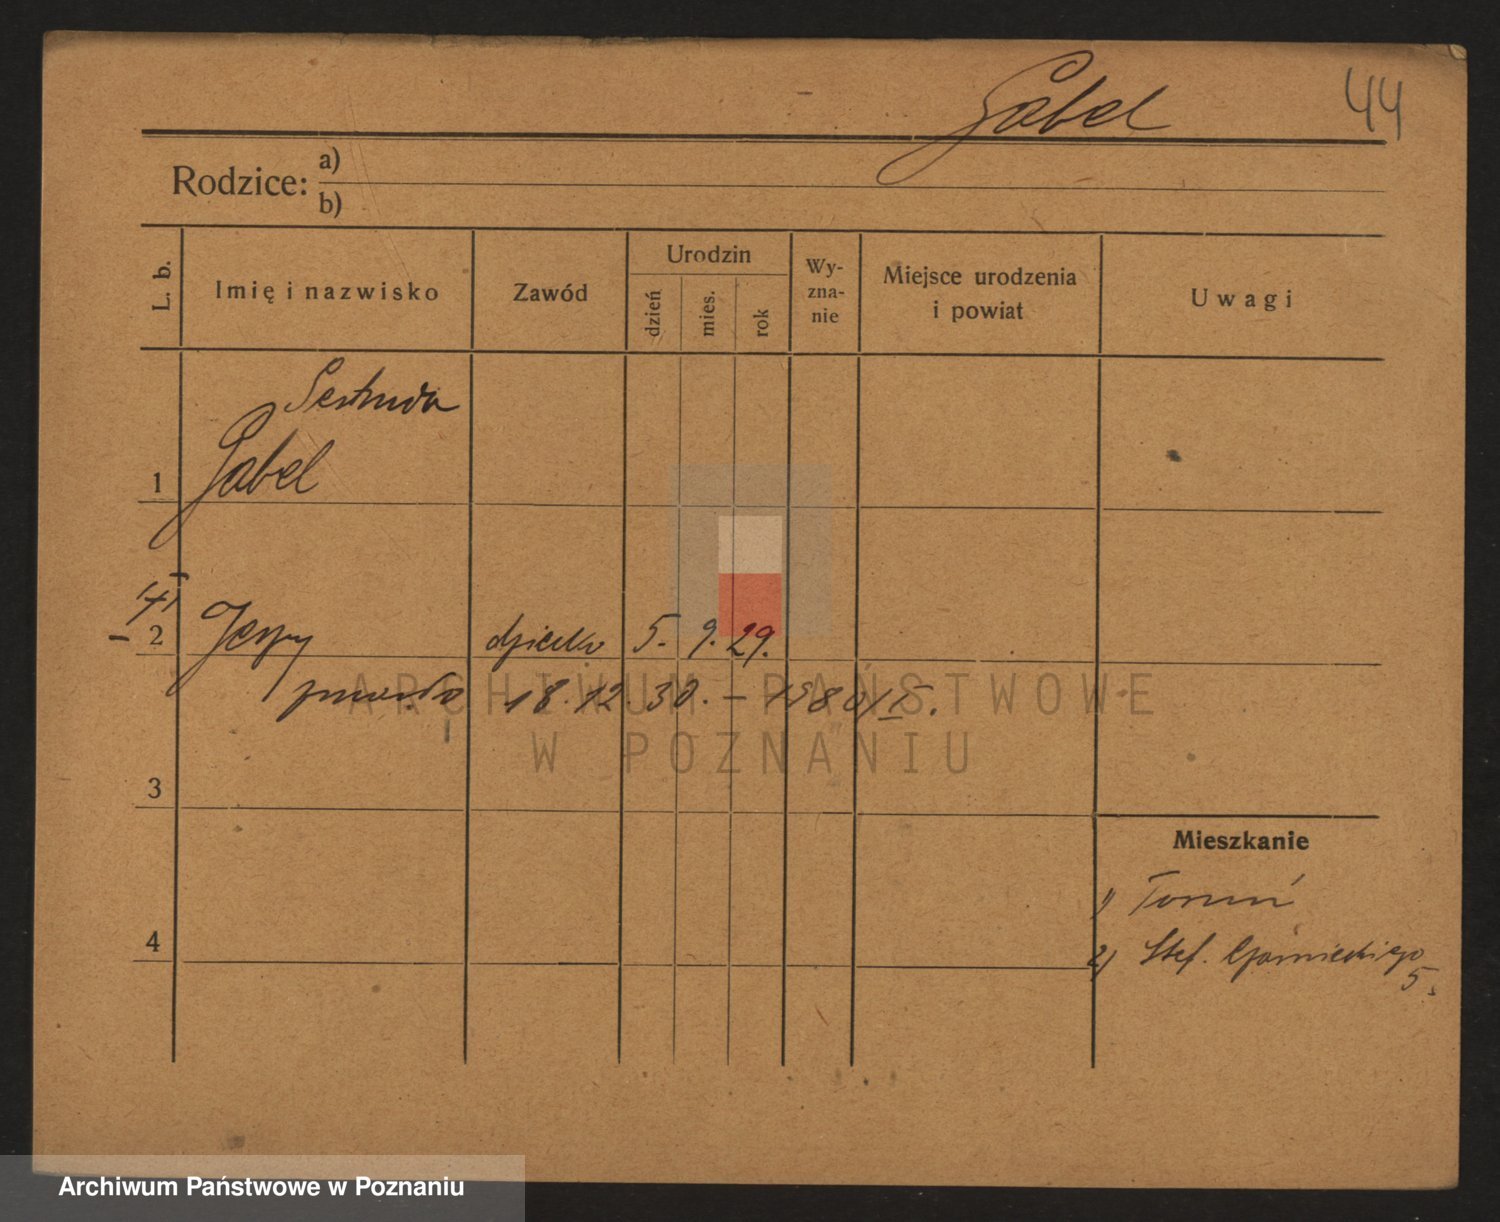 Gabel
44
Rodzice:
a)
b)
L. b.
Imię i nazwisko
Zawód
Urodzin
dzień
mies.
rok
Wy-
zna-
nie
Miejsce urodzenia
i powiat
Uwagi
Gertruda
Gabel
1
2
Jerzy dziecko 5. 9. 29.
zmarło 18.12.30. – 1980/II.
ARCHIWUM PAŃSTWOWE
W POZNANIU
3
Mieszkanie
1) Toruń
4
2) Stef. Czarnieckiego
5.
Archiwum Państwowe w Poznaniu